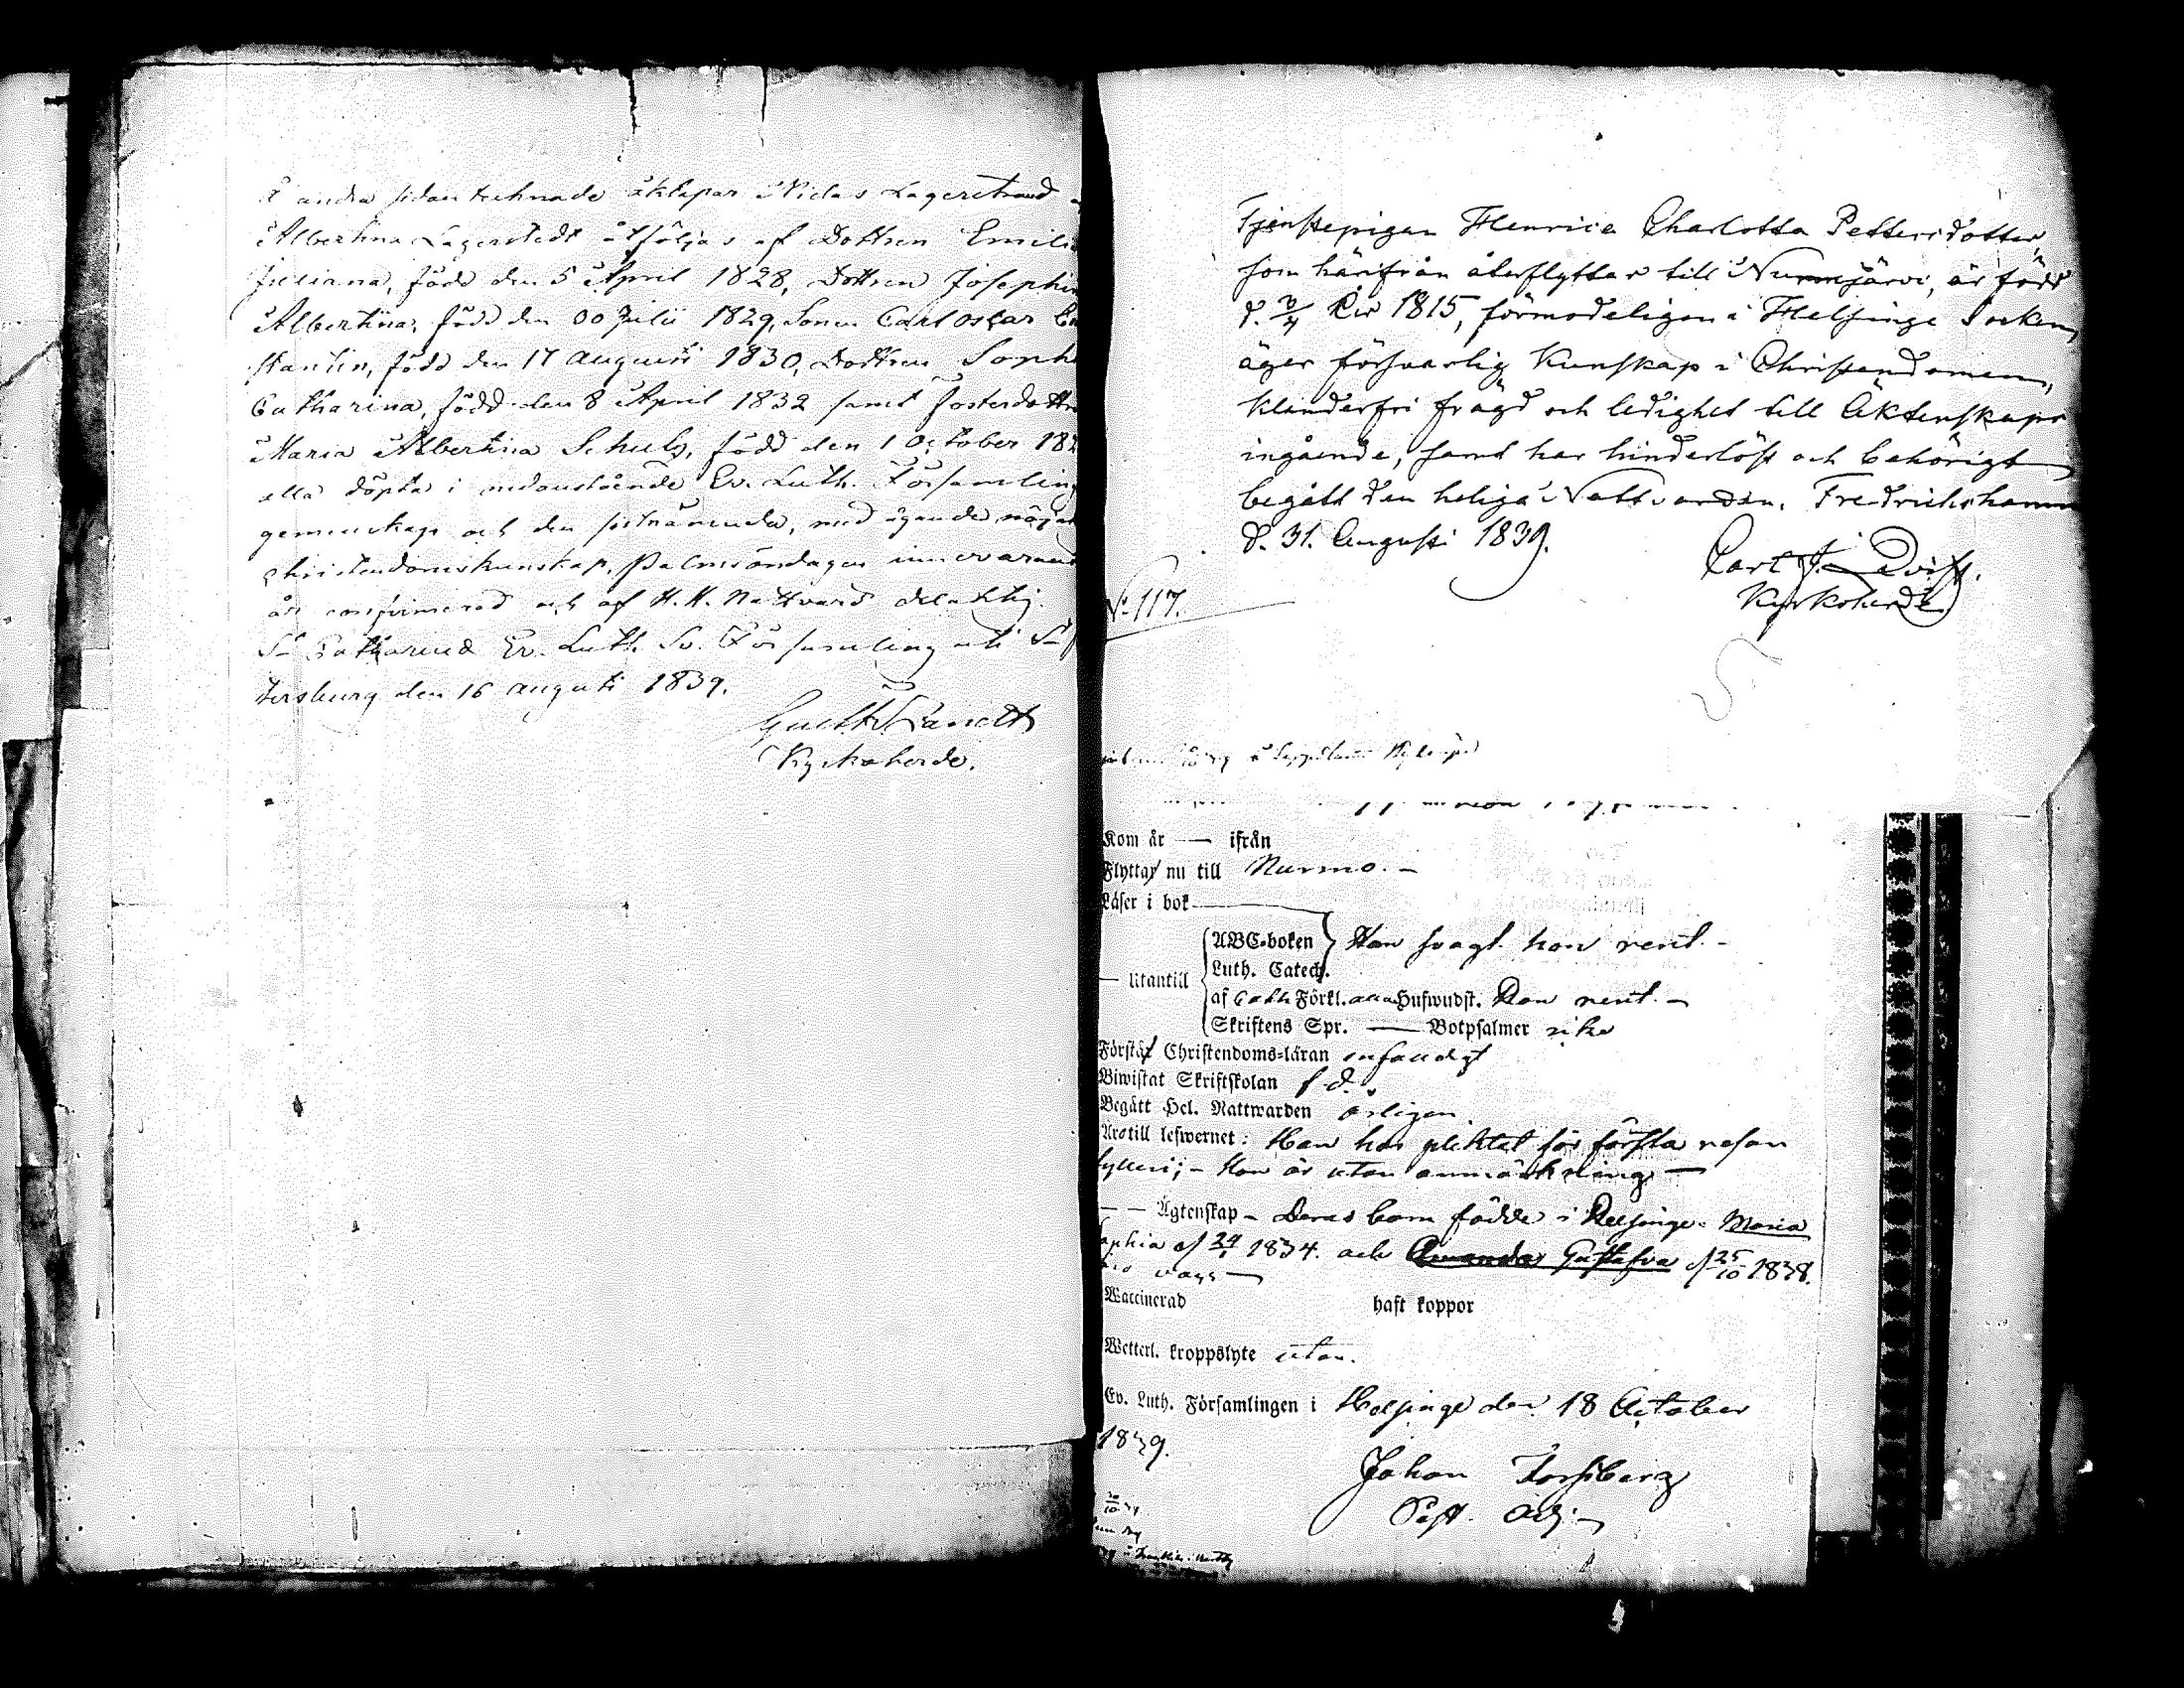 Å andra sidan tecknade äktapar Niclas Lagerstrand
Albertina Lagerstedt åtföljas af Dottren Emili
Juliana, född den 5 April 1828, Dottren Josephin
Albertina, född den 00 Julii 1829, Sonen Carl Oscar Con
stantin, född den 17 Augusti 1830, Dottren Soph
Catharina, född den 8 April 1832 samt fosterdottr
Maria Albertina Schulz, född den 1 October 182
alla döpta i nedanstående Ev. Luth. Församling
gemenskap och den sistnämnda, med ägande nöjak
christendomskunskap, Palmsöndagen innevarand
år confirmerad och af H. H. Nattvard delaktig.
S:t Catharinæ Ev. Luth. Sv. Församling uti S:t
tersburg den 16 Augusti 1839.
Kyrkoherde.
Tjenstepigan Henrica Charlotta Pettersdotter,
som härifrån återflyttar till Nurmijärvi, är född
d. 3/4 År 1815, förmodeligen i Helsinge Socken,
äger försvarlig Kunskap i Christendomen,
klanderfri frägd och ledighet till Äktenskaps
ingående, samt har hinderlöst och behörigt
begått den heliga Nattvarden. Fredrichshamn
d. 31. Augusti 1839.
Carl J.
Kyrkoherde
No 117.
Kom år — ifrån
Flyttar nu till Nurmo. —
Läser i bok
— Utantill
ABC-boken Han svagt hon rent. -
Luth. Catech.
af Förkl. alla Hufwudst. Hon rent. —
Skriftens Spr. — Botpsalmer icke
Förstår Christendoms-läran enfaldigt
Biwistat Skriftskolan f. d.
Begått Hel. Nattwarden årligen
Än till lefwernet: Han har pliktat för första resan
fylleri; - Hon är utan anmärkning —
— — Ägtenskap - Deras barn födde i Helsinge: Maria
ophia f 24/1 1834. och Amanda Gustafva f 25/10 1838.
vacc —
Waccinerad haft koppor
Wetterl. kroppslyte utan.
Ev. Luth. Församlingen i Helsinge den 18 October
1839.
Johan Forssberg
Past. Adj. —